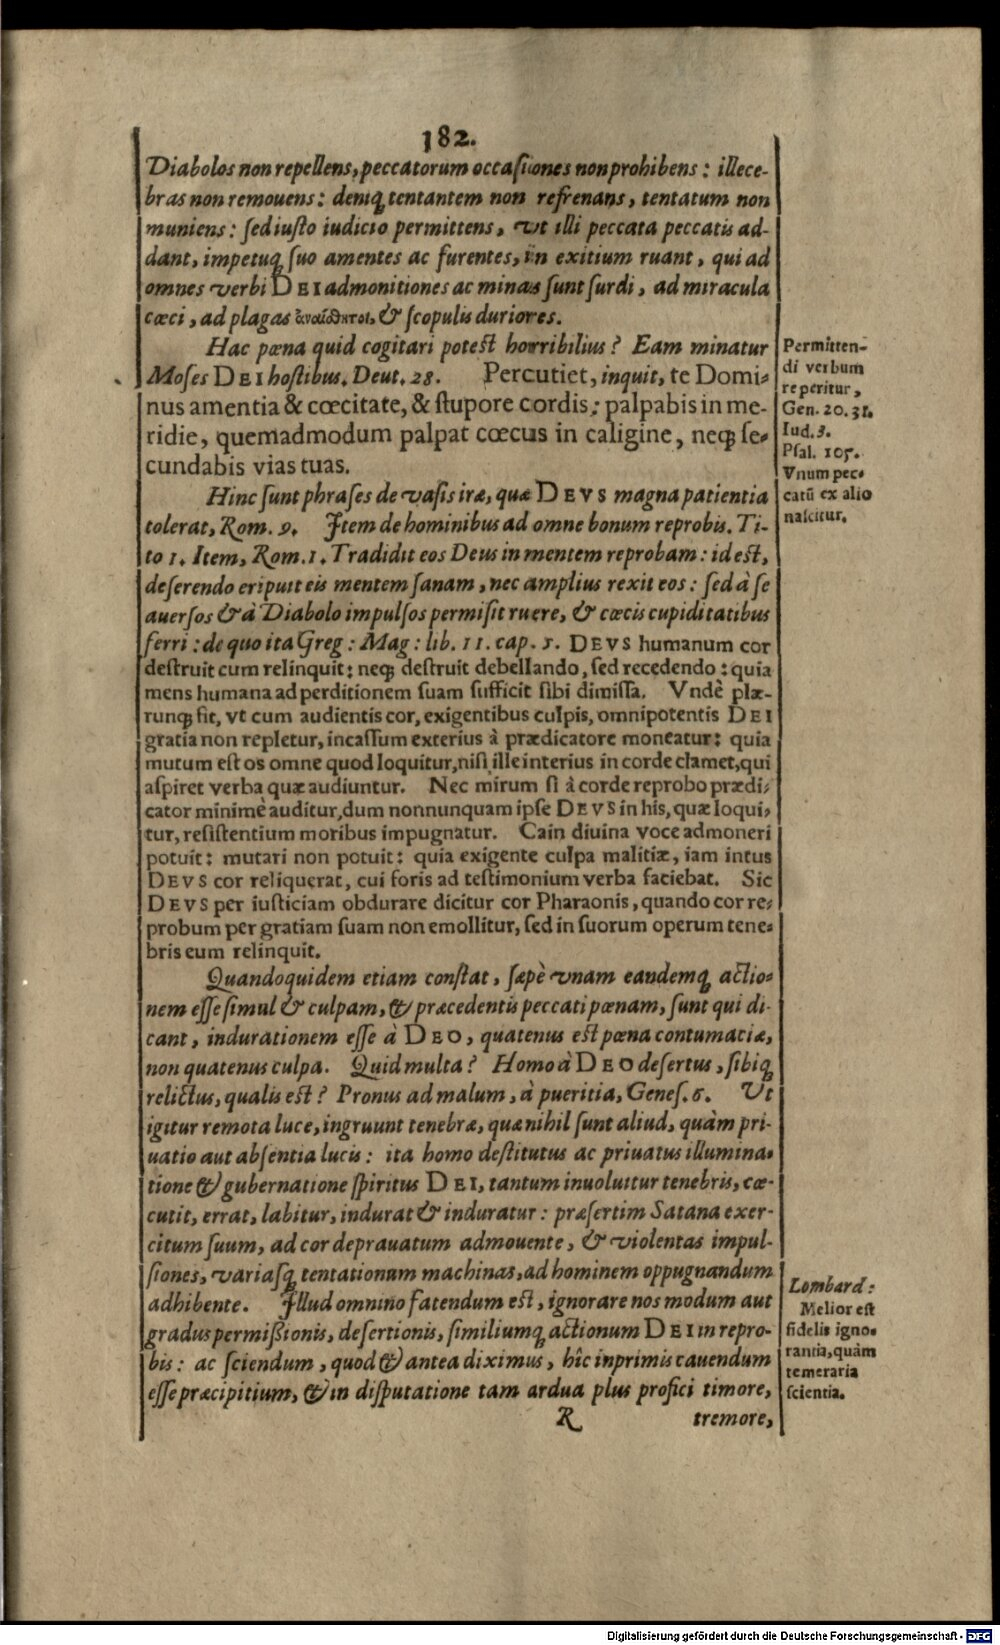 182.
Diabolos non repellens, peccatorum occasiones non prohibens: illece-
bras non remouens: deniq́ tentantem non refrenans, tentatum non
muniens: sed iusto iudicio permittens, vt illi peccata peccatis ad-
dant, impetuq́ suo amentes ac furentes, in exitium ruant, qui ad
omnes verbi DEI admonitiones ac minas sunt surdi, ad miracula
cæci, ad plagas ἀναίσθητοι, & scopulis duriores.
Hac pœna quid cogitari potest horribilius? Eam minatur
Moses DEI hostibus. Deut. 28. Percutiet, inquit, te Domi-
nus amentia & cœcitate, & stupore cordis: palpabis in me-
ridie, quemadmodum palpat cœcus in caligine, neq́ se-
cundabis vias tuas.
Permitten-
di verbum
reperitur,
Gen. 20. 31.
Iud. 3.
Psal. 105.
Vnum pec-
catũ ex alio
nascitur.
Hinc sunt phrases de vasis iræ, quæ DEVS magna patientia
tolerat, Rom. 9. Item de hominibus ad omne bonum reprobis. Ti-
to 1. Item, Rom. 1. Tradidit eos Deus in mentem reprobam: id est,
deserendo eripuit eis mentem sanam, nec amplius rexit eos: sed à se
auersos & à Diabolo impulsos permisit ruere, & cœcis cupiditatibus
ferri: de quo ita Greg: Mag: lib. 11. cap. 5. DEVS humanum cor
destruit cum relinquit: neq́ destruit debellando, sed recedendo: quia
mens humana ad perditionem suam sufficit sibi dimissa. Vndè plæ-
runq́ fit, vt cum audientis cor, exigentibus culpis, omnipotentis DEI
gratia non repletur, incassum exterius à prædicatore moneatur: quia
mutum est os omne quod loquitur, nisi ille interius in corde clamet, qui
aspiret verba quæ audiuntur. Nec mirum si à corde reprobo prædi-
cator minimè auditur, dum nonnunquam ipse DEVS in his, quæ loqui-
tur, resistentium moribus impugnatur. Cain diuina voce admoneri
potuit: mutari non potuit: quia exigente culpa malitiæ, iam intus
DEVS cor reliquerat, cui foris ad testimonium verba faciebat. Sic
DEVS per iusticiam obdurare dicitur cor Pharaonis, quando cor re-
probum per gratiam suam non emollitur, sed in suorum operum tene-
bris eum relinquit.
Quandoquidem etiam constat, sæpè vnam eandemq́ actio-
nem esse simul & culpam, & præcedentis peccati pœnam, sunt qui di-
cant, indurationem esse à DEO, quatenus est pœna contumaciæ,
non quatenus culpa. Quid multa? Homo à DEO desertus, sibiq́
relictus, qualis est? Pronus ad malum, à pueritia, Genes. 6. Ut
igitur remota luce, ingruunt tenebræ, quæ nihil sunt aliud, quàm pri-
uatio aut absentia lucis: ita homo destitutus ac priuatus illumina-
tione & gubernatione spiritus DEI, tantum inuoluitur tenebris, cæ-
cutit, errat, labitur, indurat & induratur: præsertim Satana exer-
citum suum, ad cor deprauatum admouente, & violentas impul-
siones, variasq́ tentationum machinas, ad hominem oppugnandum
adhibente. Illud omnino fatendum est, ignorare nos modum aut
gradus permißionis, desertionis, similiumq́ actionum DEI in repro-
bis: ac sciendum, quod & antea diximus, hîc inprimis cauendum
esse præcipitium, & in disputatione tam ardua plus profici timore,
Lombard:
Melior est
fidelis igno-
rantia, quàm
temeraria
scientia.
R tremore,
Digitalisierung gefördert durch die Deutsche Forschungsgemeinschaft - DFG